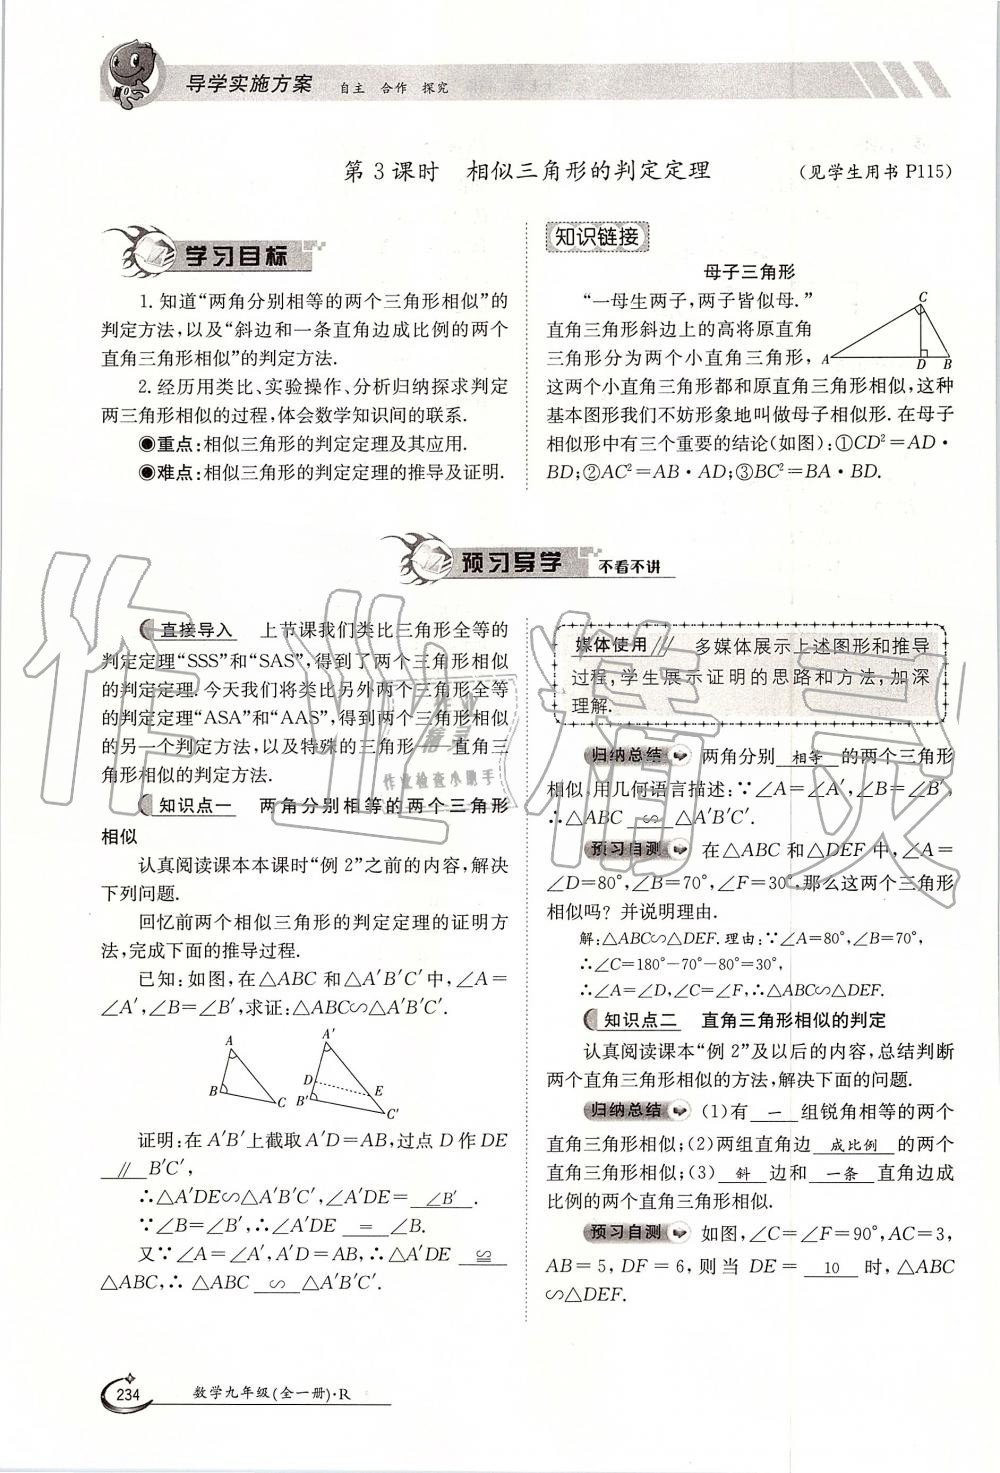 导学实施方案 自主 合作 探究
第3课时 相似三角形的判定定理 (见学生用书 P115)
学习目标
1. 知道“两角分别相等的两个三角形相似”的
判定方法,以及“斜边和一条直角边成比例的两个
直角三角形相似”的判定方法.
2. 经历用类比、实验操作、分析归纳探求判定
两三角形相似的过程,体会数学知识间的联系.
◉重点:相似三角形的判定定理及其应用.
◉难点:相似三角形的判定定理的推导及证明.
知识链接
母子三角形
“一母生两子,两子皆似母.”
直角三角形斜边上的高将原直角
三角形分为两个小直角三角形,
这两个小直角三角形都和原直角三角形相似,这种
基本图形我们不妨形象地叫做母子相似形. 在母子
相似形中有三个重要的结论(如图):①CD²=AD·
BD;②AC²=AB·AD;③BC²=BA·BD.
C
A D B
预习导学 不看不讲
直接导入 上节课我们类比三角形全等的
判定定理“SSS”和“SAS”,得到了两个三角形相似
的判定定理. 今天我们将类比另外两个三角形全等
的判定定理“ASA”和“AAS”,得到两个三角形相似
的另一个判定方法,以及特殊的三角形——直角三
角形相似的判定方法.
知识点一 两角分别相等的两个三角形
相似
认真阅读课本本课时“例2”之前的内容,解决
下列问题.
回忆前两个相似三角形的判定定理的证明方
法,完成下面的推导过程.
已知:如图,在△ABC 和△A′B′C′中,∠A=
∠A′,∠B=∠B′,求证:△ABC∽△A′B′C′.
A
B
C
A′
D
E
B′
C′
证明:在 A′B′上截取 A′D=AB,过点 D 作 DE
// B′C′,
∴△A′DE∽△A′B′C′,∠A′DE= ∠B′ .
∵∠B=∠B′,∴∠A′DE = ∠B.
又∵∠A=∠A′,A′D=AB,∴△A′DE ≌
△ABC,∴△ABC ∽ △A′B′C′.
媒体使用 // 多媒体展示上述图形和推导
过程,学生展示证明的思路和方法,加深
理解.
归纳总结 两角分别 相等 的两个三角形
相似. 用几何语言描述:∵∠A=∠A′,∠B=∠B′,
∴△ABC ∽ △A′B′C′.
预习自测 在△ABC 和△DEF 中,∠A=
∠D=80°,∠B=70°,∠F=30°,那么这两个三角形
相似吗? 并说明理由.
解:△ABC∽△DEF. 理由:∵∠A=80°,∠B=70°,
∴∠C=180°-70°-80°=30°,
∴∠A=∠D,∠C=∠F,∴△ABC∽△DEF.
知识点二 直角三角形相似的判定
认真阅读课本“例2”及以后的内容,总结判断
两个直角三角形相似的方法,解决下面的问题.
归纳总结 (1)有 一 组锐角相等的两个
直角三角形相似;(2)两组直角边 成比例 的两个
直角三角形相似;(3) 斜 边和 一条 直角边成
比例的两个直角三角形相似.
预习自测 如图,∠C=∠F=90°,AC=3,
AB=5,DF=6,则当 DE= 10 时,△ABC
∽△DEF.
234 数学九年级(全一册)·R
作业精灵
作业
精灵
作业检查小助手